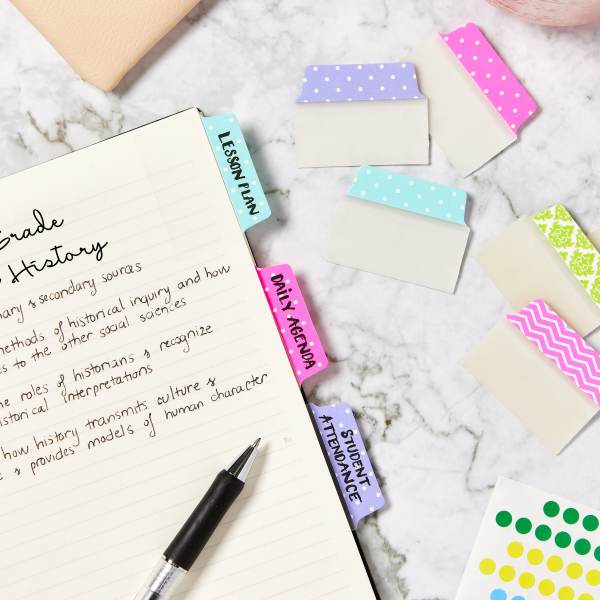 Grade
History
LESSON PLAN
DAILY AGENDA
STUDENT
ATTENDANCE
& secondary sources
methods of historical inquiry and how
to the other social sciences
the roles of historians & recognize
historical interpretations
how history transmits culture &
& provides models of human character